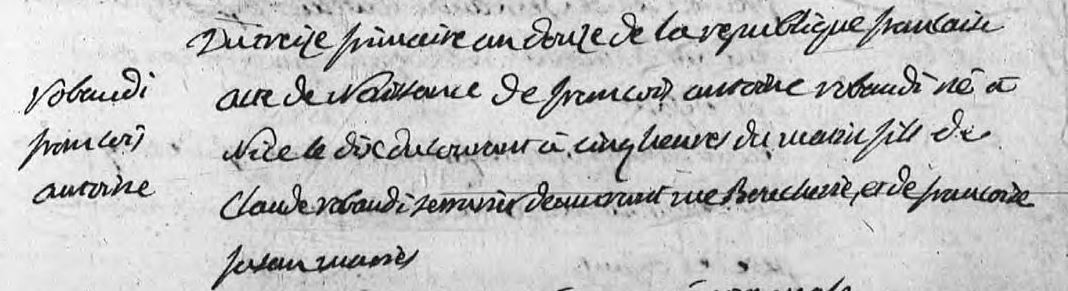 Du treize frimaire an douze de la republique francaise
Robaudi
francois
antoine
acte de Naissance de francois antoine robaudi né à
Nice le dix du courant à cinq heures du matin fils de
Claude robaudi serrurier demeurant rue Boucherie, et de francoise
mariés